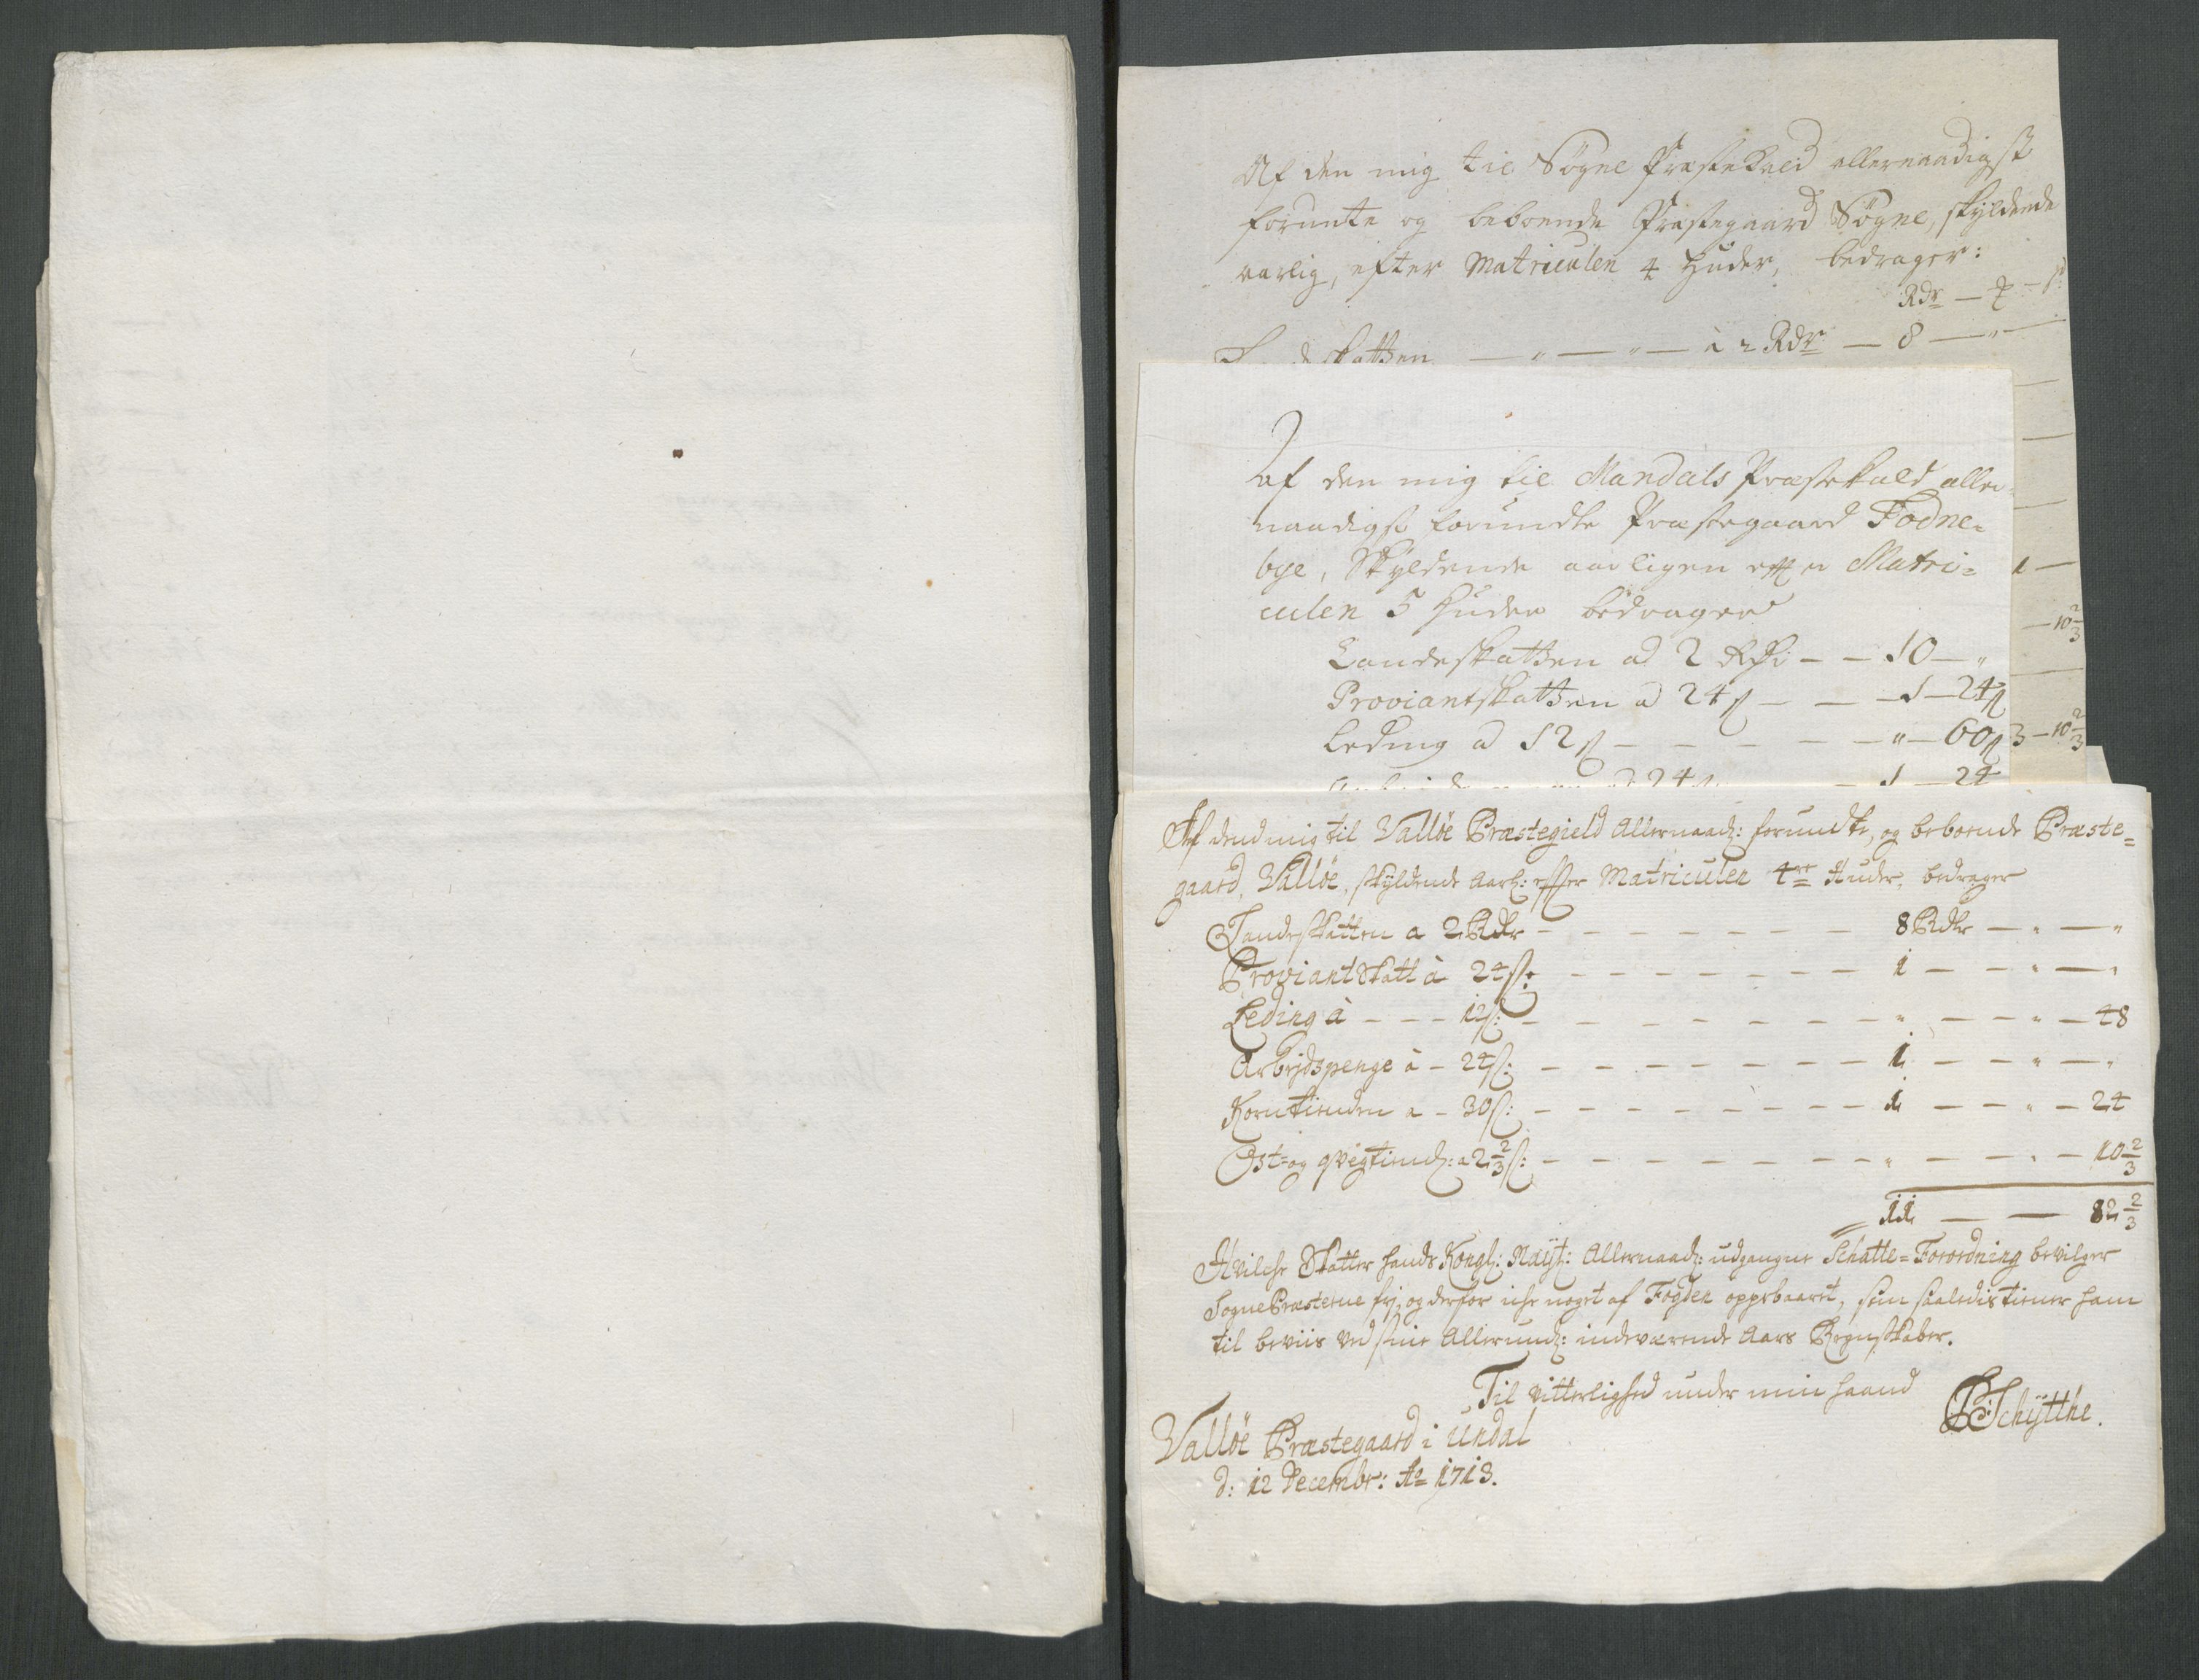 Af den mig til Søgne Præstekald allernaadigst
forunte og beboende Præstegaard Søgne, skyldende
aarlig, efter Matriculen 4 Huder, bedrager:
Rdr — ß
skatten — " — " — à 2 Rdr — 8 — "
1 —
— 10 2/3
3 — 10 2/3
Af den mig til Mandals Præstekald aller
naadigst forundte Præstegaard Fodne-
bye, Skyldende aarligen effter Matri=
culen 5 Huder bedrager
Landeskatten ad 2 Rdr — — 10 — "
Proviantskatten a 24 ß — — — 1 — 24 ß
Leding a 12 ß — — — — — — " — 60 ß
24 — 1 — 24
Af dend mig til Valløe Præstegield Allernaad: forundte, og beboende Præste=
gaard, Valløe, skyldende Aarl: effter Matriculen 4re Huder, bedrager
Landeskatten a 2 Rdr — — — — — — — 8 Rdr — " — "
Proviant Skatt à 24 ß: — — — — — — — 1 — — " — "
Leding à — — — 12 ß: — — — — — — — " — — " — 48
Arbejdspenge à — 24 ß: — — — — — — — 1 — — " — "
Korntienden a — 30 ß: — — — — — — — 1 — — " — 24
Ost= og qvegtiend: a 2 2/3 ß: — — — — — — — " — — " — 10 2/3
11 — — 82 2/3
Hvilche Skatter hands Kongl: Mayt: Allernaad: udgangne Schatte=Forordning bevilger
Sogne Præsterne frj, og derfor iche noget af Fogden oppebaaret, som saaledis tiener ham
til beviis ved sine Allerund: indeværende Aars Regnskaber.
Til vitterlighed under min haand
Valløe Præstegaard i Undal
d: 12 Decembr: Ao 1713.
Schytthe.